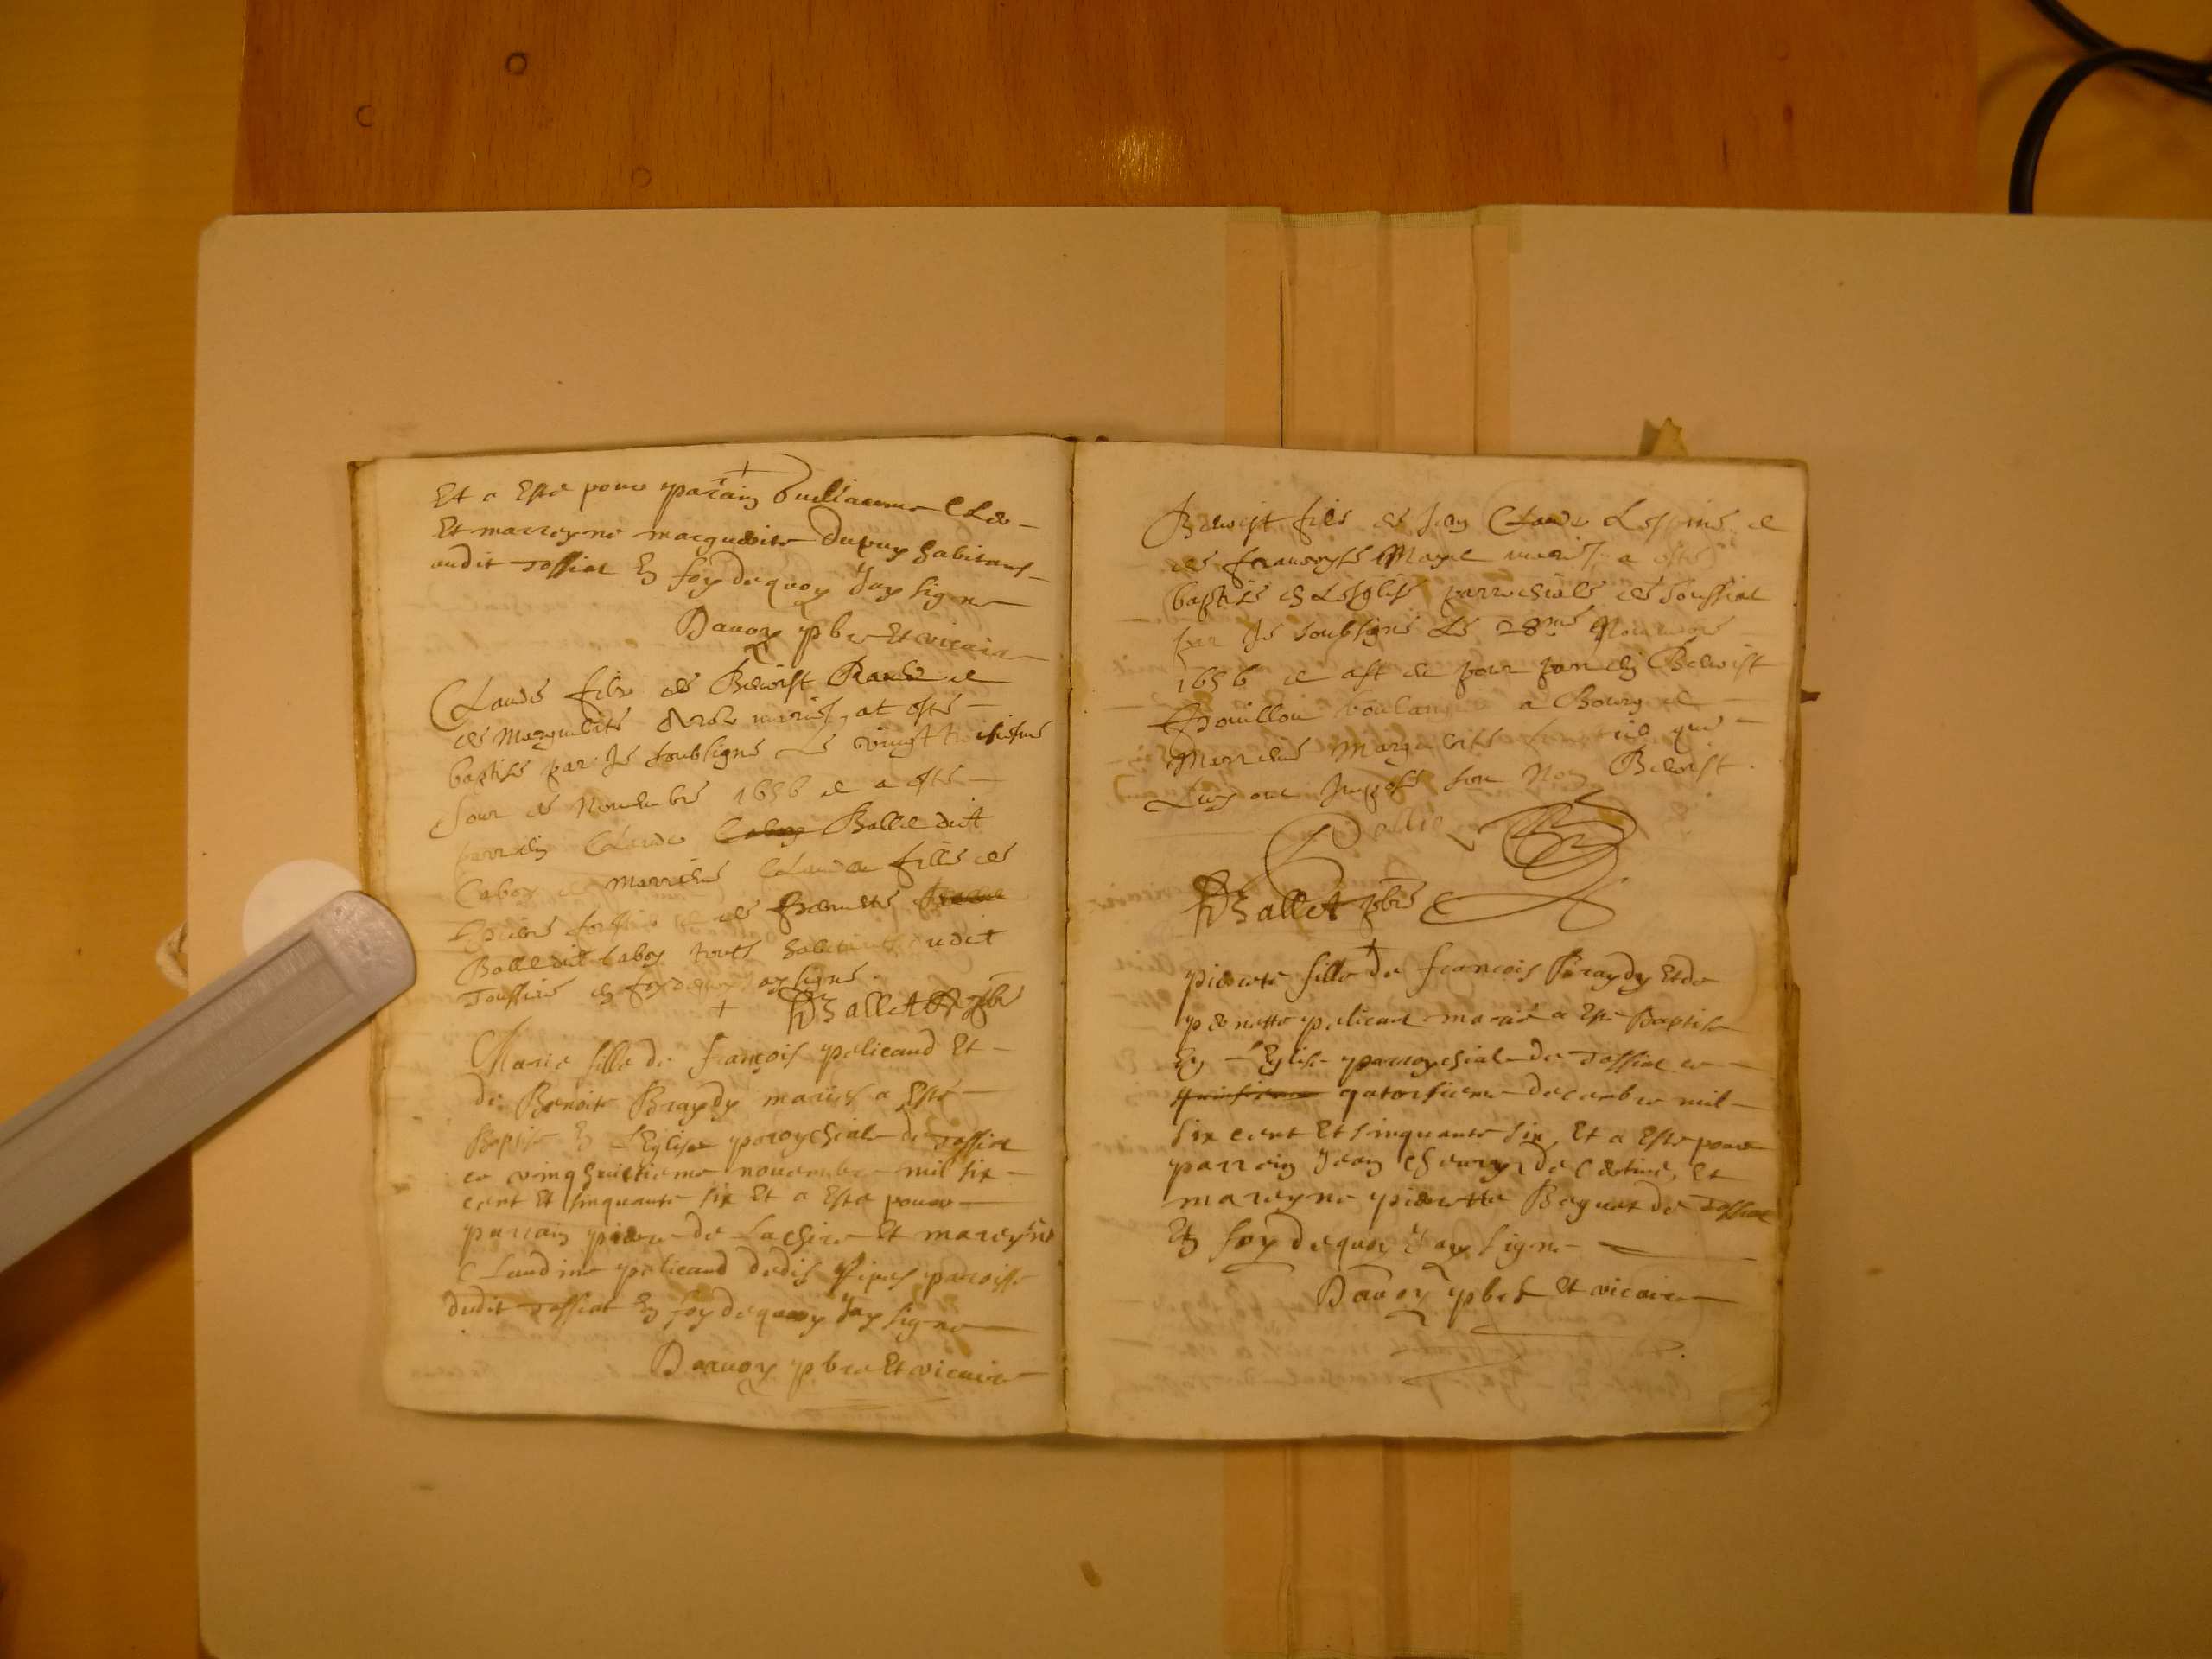 Et a Este pour parain Guilliaume
Et marreyne marguerite Dupuy habitans
audit Tossiat En foy dequoy Jay signe
Dauoy pbre Et vicaire
Claude filz de Benoist et
de Marguerite mariés at esté
baptisé par Je soubsigné Le vingt troisiesme
Jour de Nouembre 1656 et a esté
parrein Claude Ballet dict
Caboz et Marreine Clauda fille de
et de Pernette
Ballet dict Caboz touts habitants audit
Toussia en foy dequoy ay signé
DBallet pbre
Marie fille de françois pelicand Et
de Benoite Braydy mariés a Esté
Baptise En L'Eglise paroychiale de Tossiat
ce vinghuittieme nouembre mil six
cent Et sinquante six Et a Este pour
parrain piere de Lachise Et mareyne
Claudine pelicand dudis paroisse
dudit Tossiat En foy dequoy Jay signe
Daruoy pbre Et vicaire
Benoist filz de Jean Claude et
de francoyse Mayet mariés a esté
baptisé en Lesglise parrochiale de Toussiat
par Je soubsigné Le 28me Nouembre
1656 et ast eu pour parrein Benoist
boulangier a Bourg et
Marreine Marguerite qui
Luy ont Imposé son Nom Benoist
DBallet pbre
pierrete fille de francois Braydy Et de
pernette pelicant marié a Esté Baptise
En L'Eglise parroychiale de Tossiat ce
quinsieme qatorsieme decembre mil
six cent Et sinquante six, Et a Este pour
parrein Jean de Certine, Et
mareyne pierrette Beguet de Tossiat
En foy dequoy Jay signe
Dauoy pbre Et vicaire